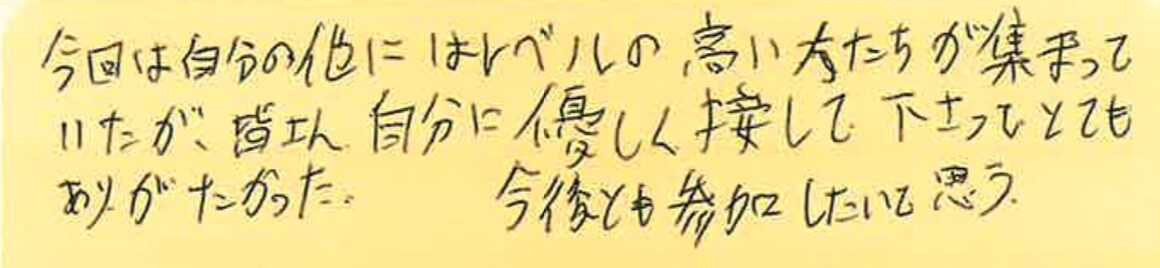 今回は自分の他にはレベルの高い方たちが集まって
いたが、皆さん自分に優しく接して下さってとても
ありがたかった。 今後とも参加したいと思う。